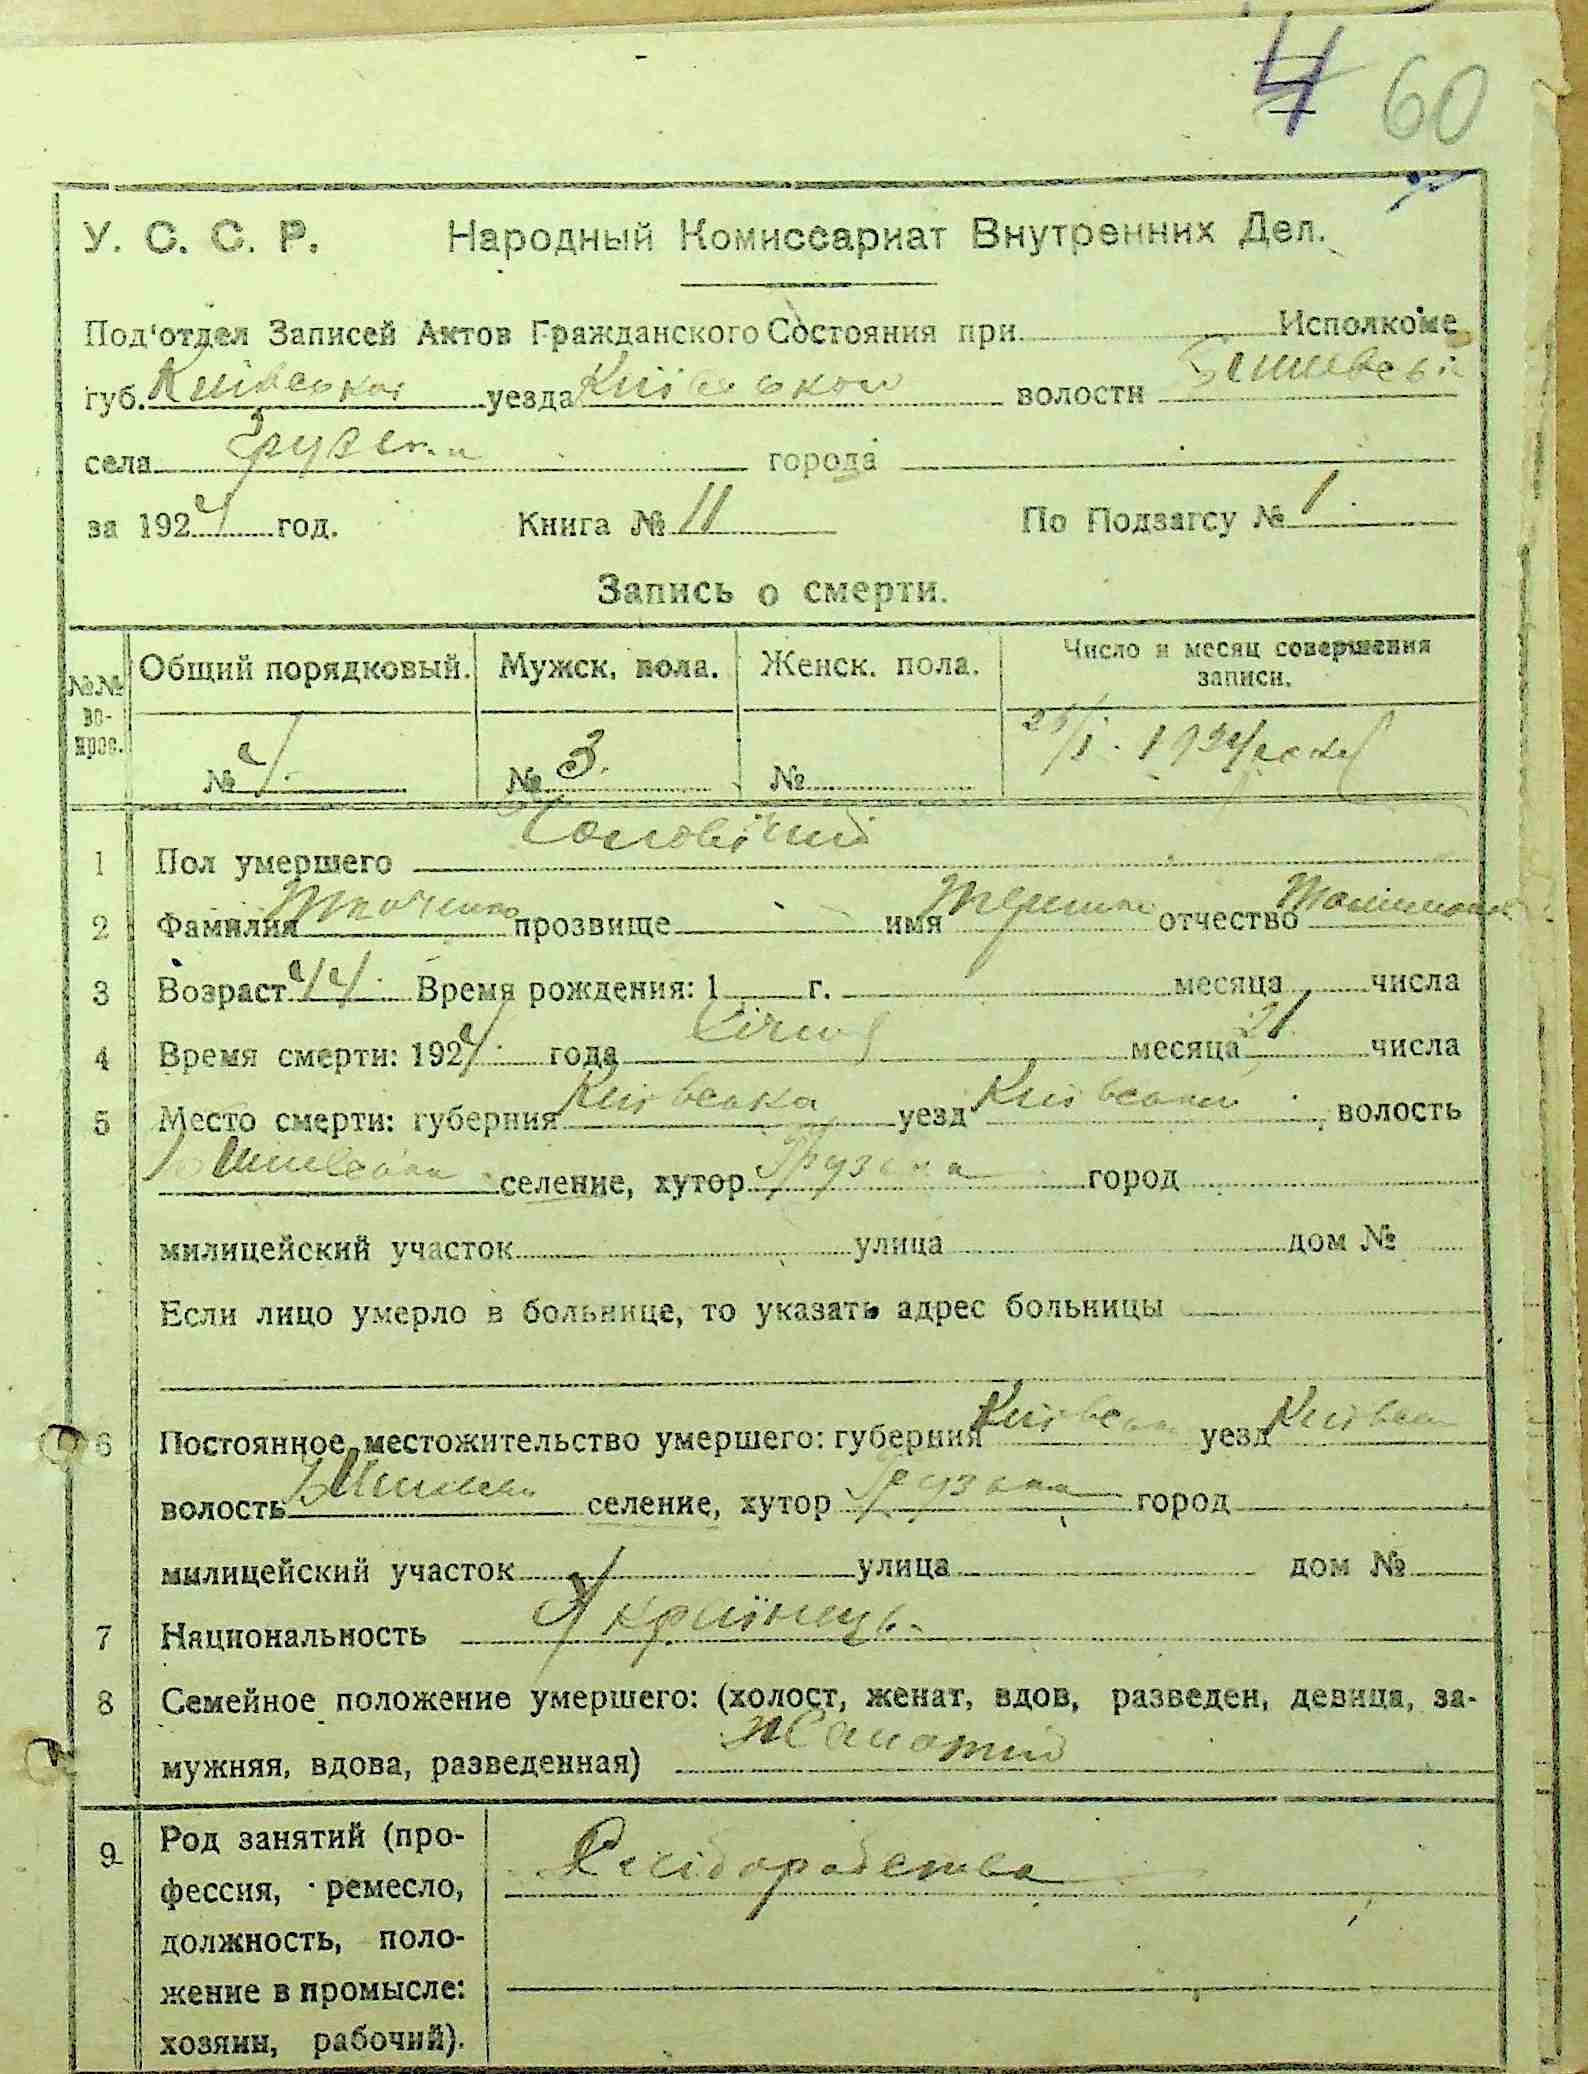 4 60
У. С. С. Р. Народный Комиссариат Внутренних Дел.
Под'отдел Записей Актов Гражданского Состояния при Исполкоме
губ. Київської уезда Київської волости
села города
за 1924 год. Книга № 11 По Подзагсу № 1.
Запись о смерти.
№№ во- прос. Общий порядковый. Мужск. пола. Женск. пола. Число и месяц совершения записи.
№ 4. № 3. № /I. 1924 року
1 Пол умершего Чоловічий
2 Фамилия Ткаченко прозвище имя отчество
3 Возраст 44. Время рождения: 1 г. месяца числа
4 Время смерти: 1924. года Січня месяца 21. числа
5 Место смерти: губерния Київська уезд волость
селение, хутор Грузька город
милицейский участок улица дом №
Если лицо умерло в больнице, то указать адрес больницы
6 Постоянное местожительство умершего: губерния Київська уезд
волость селение, хутор Грузька город
милицейский участок улица дом №
7 Национальность Українець.
8 Семейное положение умершего: (холост, женат, вдов, разведен, девица, за-
мужняя, вдова, разведенная) Жонатий
9 Род занятий (про- Хліборобство
фессия, ремесло,
должность, поло-
жение в промысле:
хозяин, рабочий).